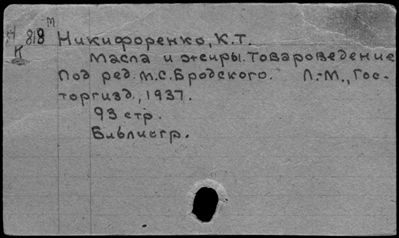 М
818 Никифоренко, К.Т.
К
Масла и жиры. Товароведение
Под ред. М.С. Бродского. Л.-М., Гос-
торгизд., 1937.
93 стр.
Библиогр.